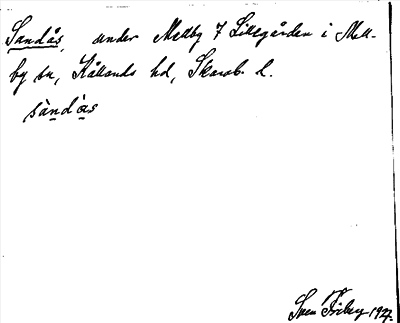 Sandås, under Mellby 7 Lillegården i Mell-
by sn, Kållands hd, Skarab. l.
sàndås
Sven Friberg 192